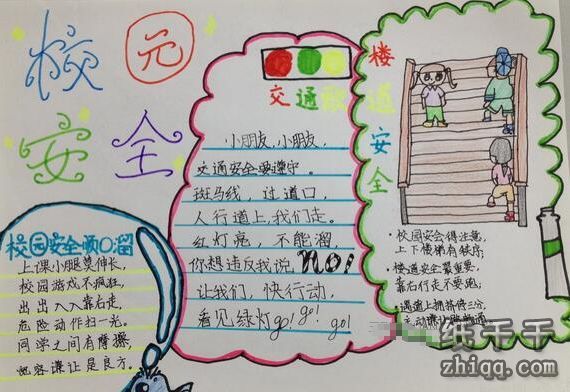 校园
安全
校园安全顺口溜
上课小腿莫伸长，
校园游戏不疯狂，
出出入入靠右走，
危险动作扫一光。
同学之间有摩擦，
宽容谦让是良方。
交通歌
小朋友，小朋友，
交通安全要遵守。
斑马线，过道口，
人行道上，我们走。
红灯亮，不能溜，
你想违反我说，NO!
让我们，快行动，
看见绿灯go! go! go!
楼道安全
·校园安会得注意，
上下楼梯有秩序；
·楼道安全最重要，
靠右行走不要跑；
·遇道上拥挤待三分，
纸千千
zhiqq.com